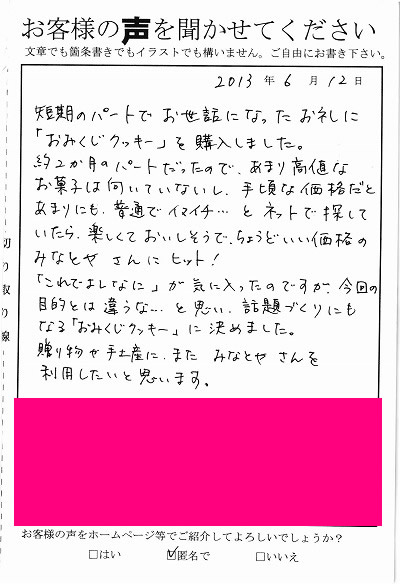 お客様の声を聞かせてください
文章でも箇条書きでもイラストでも構いません。ご自由にお書き下さい。
2013年6月12日
短期のパートでお世話になったお礼に
「おみくじクッキー」を購入しました。
約2か月のパートだったので、あまり高値な
お菓子は向いていないし、手頃な価格だと
あまりにも、普通でイマイチ…とネットで探して
いたら、楽しくておいしそうで、ちょうどいい価格の
みなとやさんにヒット!
「これでよしなに」が気に入ったのですが、今回の
目的とは違うな…と思い、話題づくりにも
なる「おみくじクッキー」に決めました。
贈り物や手土産に、また みなとや さんを
利用したいと思います。
切り取り線
お客様の声をホームページ等でご紹介してよろしいでしょうか?
□はい ☑匿名で □いいえ